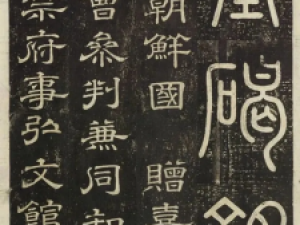 碣銘
朝鮮國 贈嘉
曹參判兼同知
禁府事弘文館